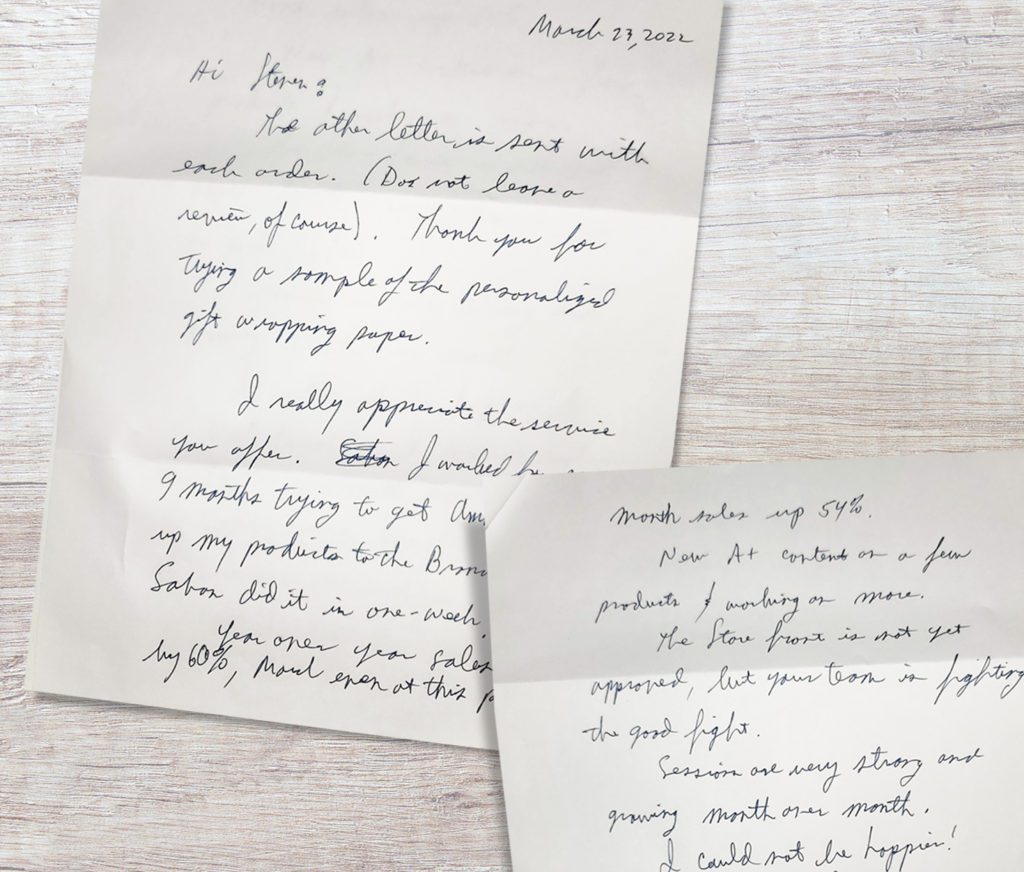 March 23, 2022
Hi Steven:
The other letter is sent with
each order. (Do not leave a
review, of course). Thank you for
trying a sample of the personalized
gift wrapping paper.
I really appreciate the service
you offer. I worked
9 months trying to get Am
up my products to the Bran
Saban did it in one-week.
Year over year sales
by 60%, March even at this p
month sales up 54%.
New A+ content on a few
products & working on more.
The Store front is not yet
approved, but your team is fighting
the good fight.
Session are very strong and
growing month over month.
I could not be happier!